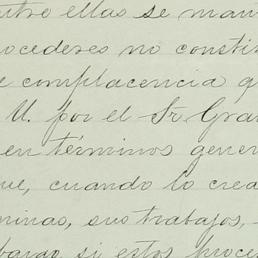 ntre ellas se man
rocederes no consti
e complacencia q
U. por el Sr. Gra
en términos gener
ue, cuando lo crea
minas, sus trabajos,
bargo si estos proce